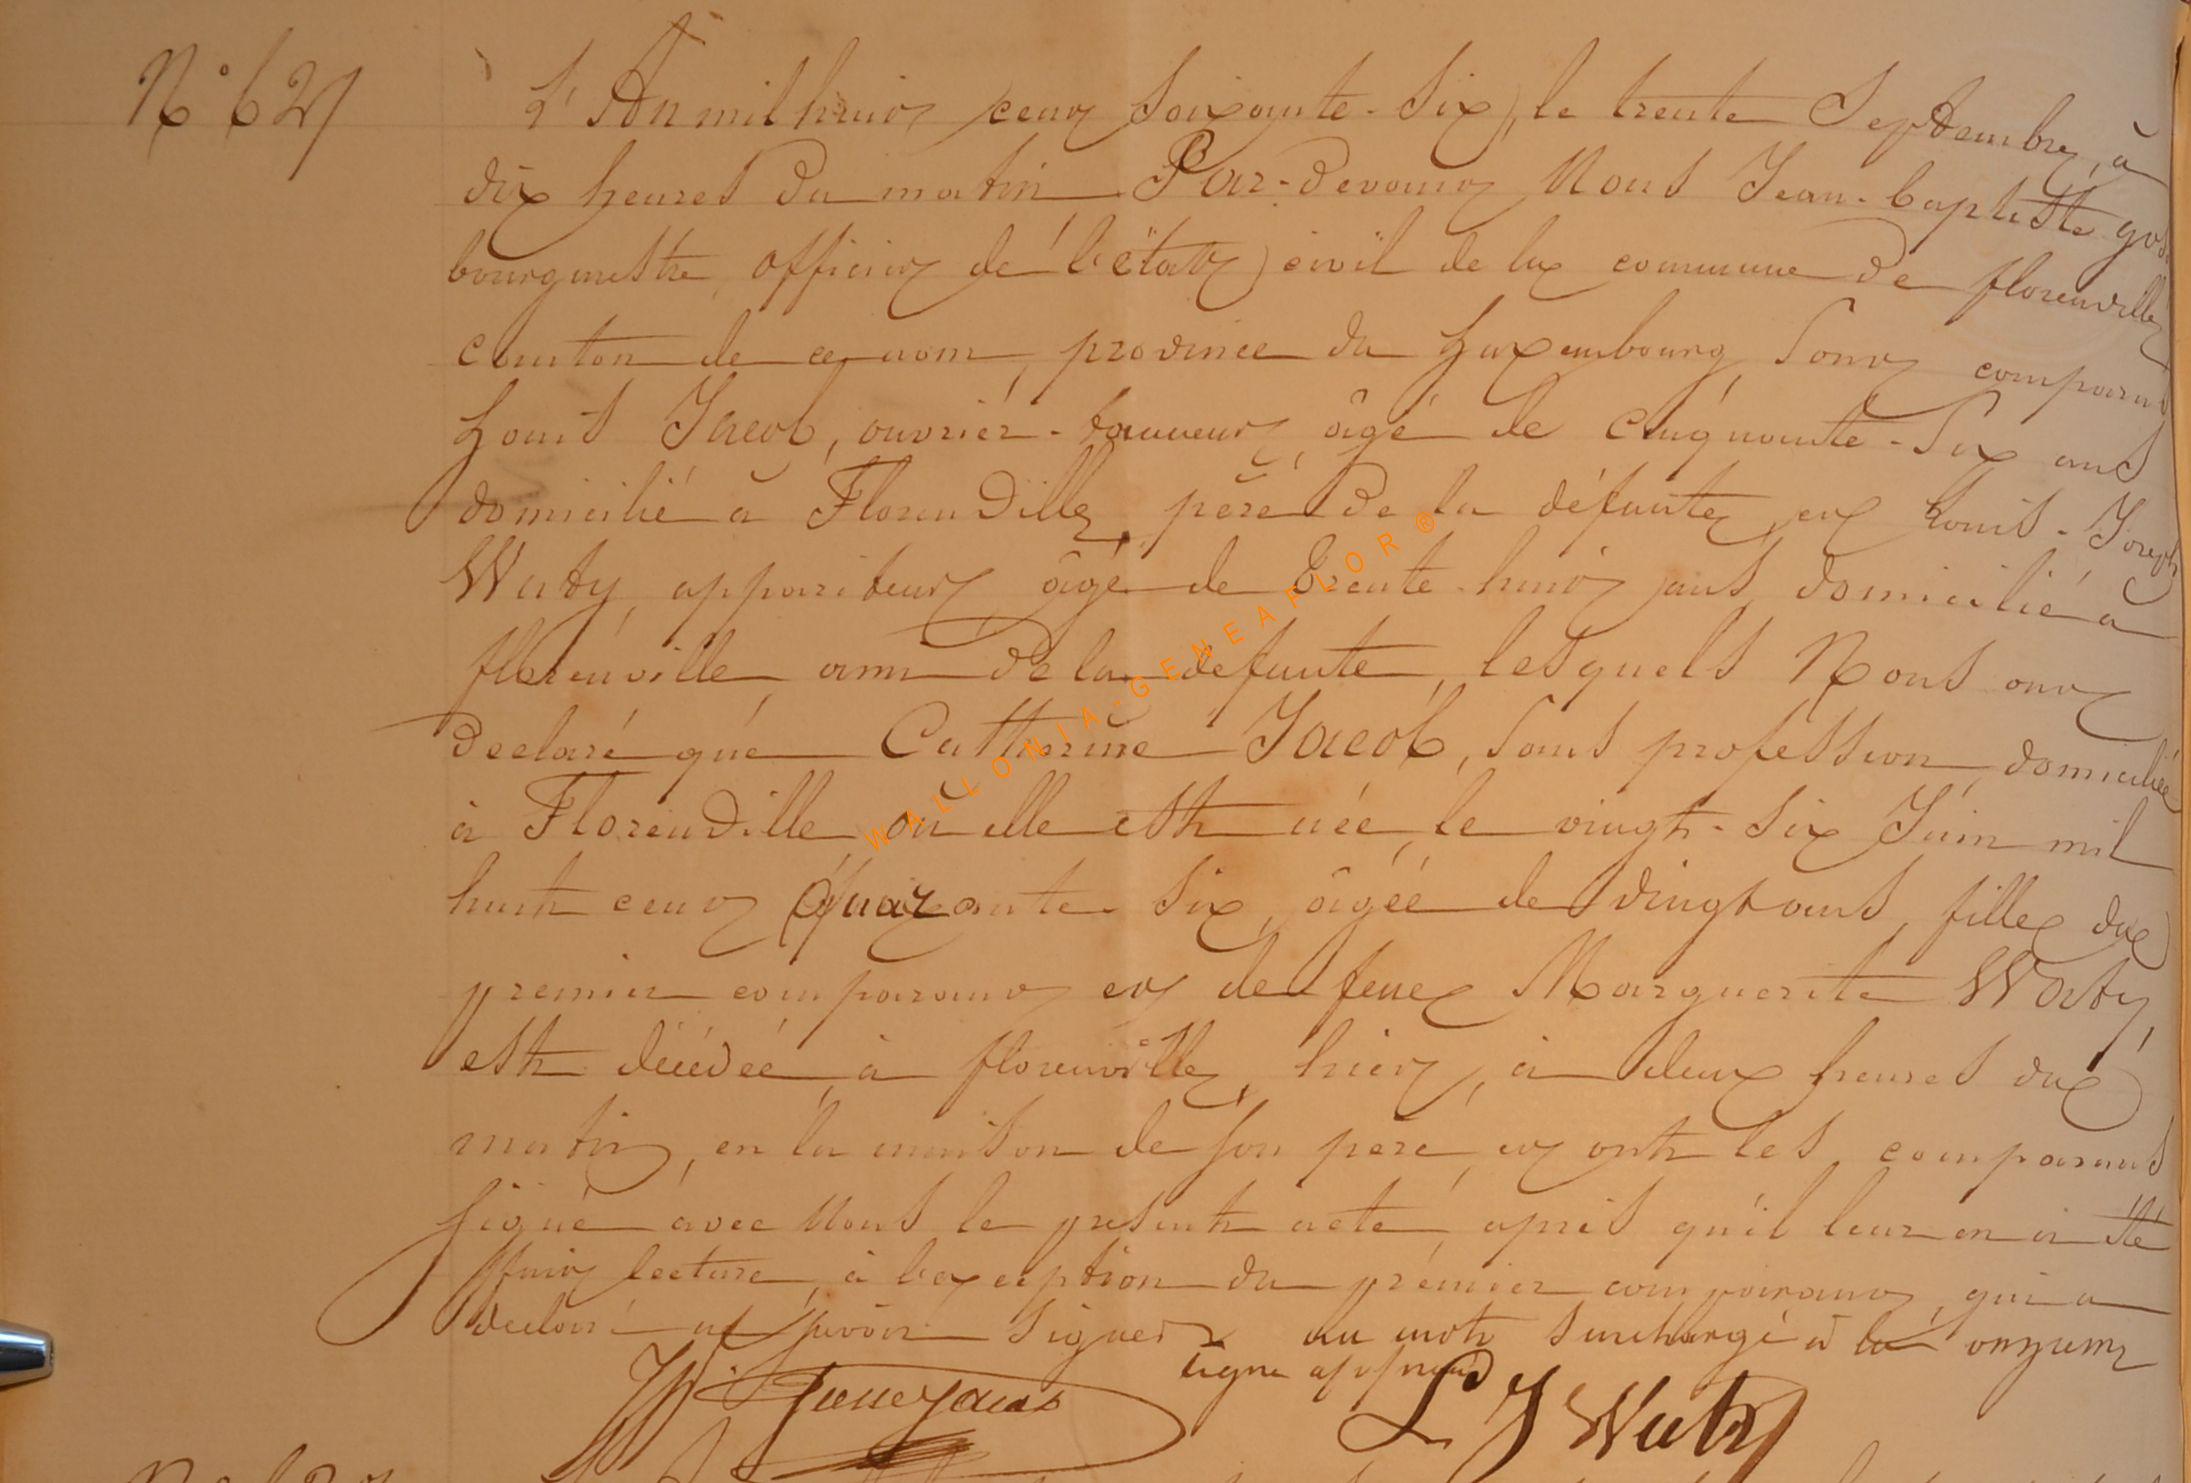 N° 627
L'An mil huit cent soixante-six, le trente Septembre, à
dix heures du matin Par-devant Nous Jean-baptiste
bourgmestre, officier de l'état civil de la commune de florenville
canton de ce nom, province du Luxembourg, sont comparus
Louis Jacob, ouvrier-tanneur, âgé de cinquante-six ans
domicilié à Florenville, père de la défunte, et Louis-Joseph
Waty, appariteur, âgé de trente-huit ans, domicilié à
florenville, ami de la défunte, lesquels Nous ont
déclaré que Catherine Jacob, sans profession, domiciliée
à Florenville où elle est née, le vingt-six Juin mil
huit cent quarante-six, âgée de vingt ans, fille du
premier comparant et de feue Marguerite Waty,
est décédée à florenville, hier, à deux heures du
matin, en la maison de son père, et ont les comparants
signé avec Nous le présent acte, après qu'il leur en a été
fait lecture, à l'exception du premier comparant, qui a
déclaré ne savoir signer au mot surchargé à la onzieme
ligne approuvé
L J Waty
WALLONIA-GENEAFLOR®